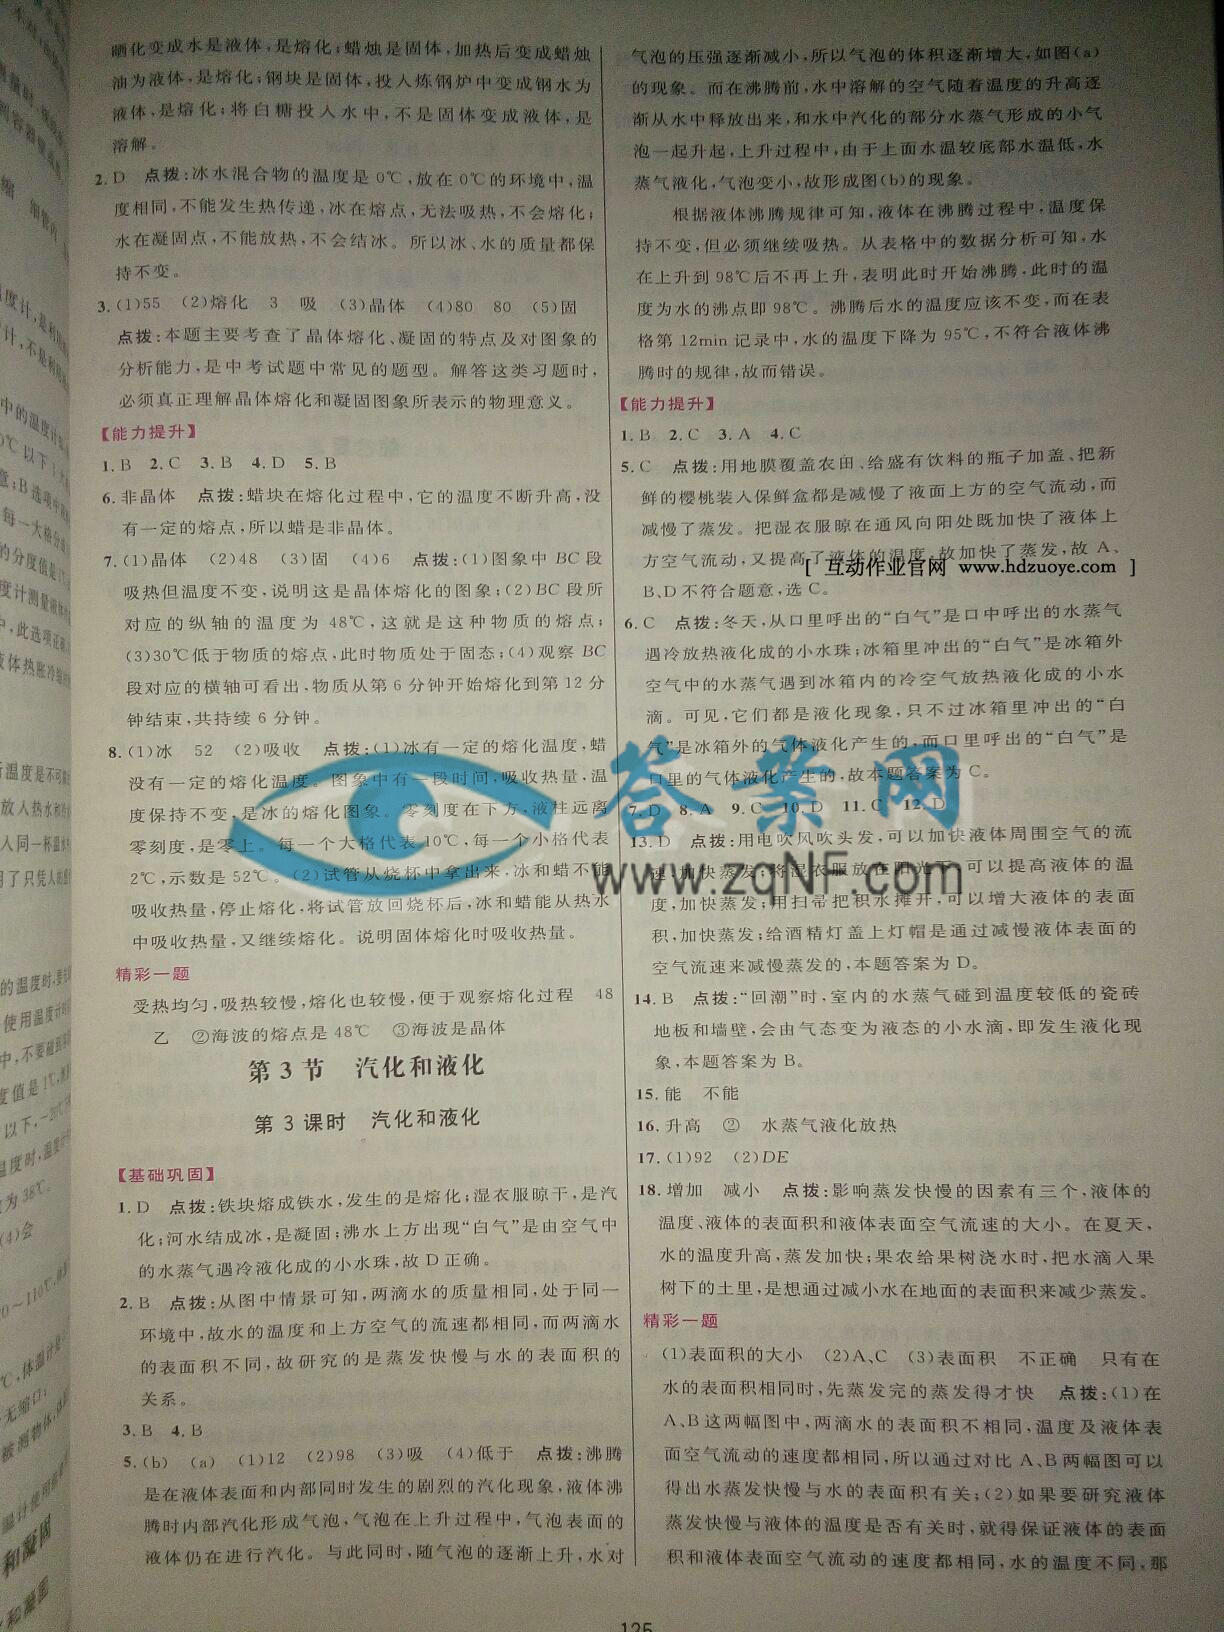 晒化变成水是液体,是熔化;蜡烛是固体,加热后变成蜡烛
油为液体,是熔化;钢块是固体,投入炼钢炉中变成钢水为
液体,是熔化;将白糖投入水中,不是固体变成液体,是
溶解。
2. D 点拨:冰水混合物的温度是0℃,放在0℃的环境中,温
度相同,不能发生热传递,冰在熔点,无法吸热,不会熔化;
水在凝固点,不能放热,不会结冰。所以冰、水的质量都保
持不变。
3. (1)55 (2)熔化 3 吸 (3)晶体 (4)80 80 (5)固
点拨:本题主要考查了晶体熔化、凝固的特点及对图象的
分析能力,是中考试题中常见的题型。解答这类习题时,
必须真正理解晶体熔化和凝固图象所表示的物理意义。
【能力提升】
1. B 2. C 3. B 4. D 5. B
6. 非晶体 点拨:蜡块在熔化过程中,它的温度不断升高,没
有一定的熔点,所以蜡是非晶体。
7. (1)晶体 (2)48 (3)固 (4)6 点拨:(1)图象中BC段
吸热但温度不变,说明这是晶体熔化的图象;(2)BC段所
对应的纵轴的温度为48℃,这就是这种物质的熔点;
(3)30℃低于物质的熔点,此时物质处于固态;(4)观察BC
段对应的横轴可看出,物质从第6分钟开始熔化到第12分
钟结束,共持续6分钟。
8. (1)冰 52 (2)吸收 点拨:(1)冰有一定的熔化温度,蜡
没有一定的熔化温度。图象中有一段时间,吸收热量,温
度保持不变,是冰的熔化图象。零刻度在下方,液柱远离
零刻度,是零上。每一个大格代表10℃,每一个小格代表
2℃,示数是52℃。(2)试管从烧杯中拿出来,冰和蜡不能
吸收热量,停止熔化,将试管放回烧杯后,冰和蜡能从热水
中吸收热量,又继续熔化。说明固体熔化时吸收热量。
精彩一题
受热均匀,吸热较慢,熔化也较慢,便于观察熔化过程 48
乙 ②海波的熔点是48℃ ③海波是晶体
第3节 汽化和液化
第3课时 汽化和液化
【基础巩固】
1. D 点拨:铁块熔成铁水,发生的是熔化;湿衣服晾干,是汽
化;河水结成冰,是凝固;沸水上方出现“白气”是由空气中
的水蒸气遇冷液化成的小水珠,故D正确。
2. B 点拨:从图中情景可知,两滴水的质量相同,处于同一
环境中,故水的温度和上方空气的流速都相同,而两滴水
的表面积不同,故研究的是蒸发快慢与水的表面积的
关系。
3. B 4. B
5. (b) (a) (1)12 (2)98 (3)吸 (4)低于 点拨:沸腾
是在液体表面和内部同时发生的剧烈的汽化现象,液体沸
腾时内部汽化形成气泡,气泡在上升过程中,气泡表面的
液体仍在进行汽化。与此同时,随气泡的逐渐上升,水对
气泡的压强逐渐减小,所以气泡的体积逐渐增大,如图(a)
的现象。而在沸腾前,水中溶解的空气随着温度的升高逐
渐从水中释放出来,和水中汽化的部分水蒸气形成的小气
泡一起升起,上升过程中,由于上面水温较底部水温低,水
蒸气液化,气泡变小,故形成图(b)的现象。
根据液体沸腾规律可知,液体在沸腾过程中,温度保
持不变,但必须继续吸热。从表格中的数据分析可知,水
在上升到98℃后不再上升,表明此时开始沸腾,此时的温
度为水的沸点即98℃。沸腾后水的温度应该不变,而在表
格第12min记录中,水的温度下降为95℃,不符合液体沸
腾时的规律,故而错误。
【能力提升】
1. B 2. C 3. A 4. C
5. C 点拨:用地膜覆盖农田、给盛有饮料的瓶子加盖、把新
鲜的樱桃装入保鲜盒都是减慢了液面上方的空气流动,而
减慢了蒸发。把湿衣服晾在通风向阳处既加快了液体上
方空气流动,又提高了液体的温度,故加快了蒸发,故A、
[ 互动作业官网 www.hdzuoye.com ]
B、D不符合题意,选C。
6. C 点拨:冬天,从口里呼出的“白气”是口中呼出的水蒸气
遇冷放热液化成的小水珠;冰箱里冲出的“白气”是冰箱外
空气中的水蒸气遇到冰箱内的冷空气放热液化成的小水
滴。可见,它们都是液化现象,只不过冰箱里冲出的“白
气”是冰箱外的气体液化产生的,而口里呼出的“白气”是
口里的气体液化产生的,故本题答案为C。
7. D 8. A 9. C 10. D 11. C 12. D
13. D 点拨:用电吹风吹头发,可以加快液体周围空气的流
速,加快蒸发;将湿衣服放在阳光下,可以提高液体的温
度,加快蒸发;用扫帚把积水摊开,可以增大液体的表面
积,加快蒸发;给酒精灯盖上灯帽是通过减慢液体表面的
空气流速来减慢蒸发的,本题答案为D。
14. B 点拨:“回潮”时,室内的水蒸气碰到温度较低的瓷砖
地板和墙壁,会由气态变为液态的小水滴,即发生液化现
象,本题答案为B。
15. 能 不能
16. 升高 ② 水蒸气液化放热
17. (1)92 (2)DE
18. 增加 减小 点拨:影响蒸发快慢的因素有三个,液体的
温度、液体的表面积和液体表面空气流速的大小。在夏天,
水的温度升高,蒸发加快;果农给果树浇水时,把水滴入果
树下的土里,是想通过减小水在地面的表面积来减少蒸发。
精彩一题
(1)表面积的大小 (2)A、C (3)表面积 不正确 只有在
水的表面积相同时,先蒸发完的蒸发得才快 点拨:(1)在
A、B这两幅图中,两滴水的表面积不相同,温度及液体表
面空气流动的速度都相同,所以通过对比A、B两幅图可以
得出水蒸发快慢与水的表面积有关;(2)如果要研究液体
蒸发快慢与液体的温度是否有关时,就得保证液体的表面
积和液体表面空气流动的速度都相同,水的温度不同,那
答案网
www.zqNF.com
125